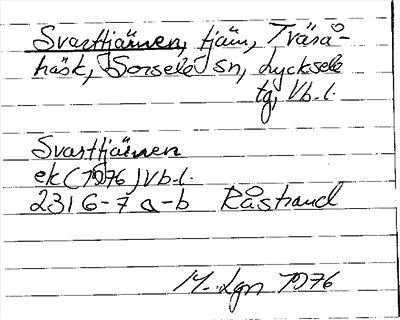 Svarttjärnen, tjärn, Tvärå-
träsk, Sorsele sn, Lycksele
tg, Vb. l.
Svarttjärnen
ek (1976) Vb. l.
23I 6-7 a-b Råstrand
1976